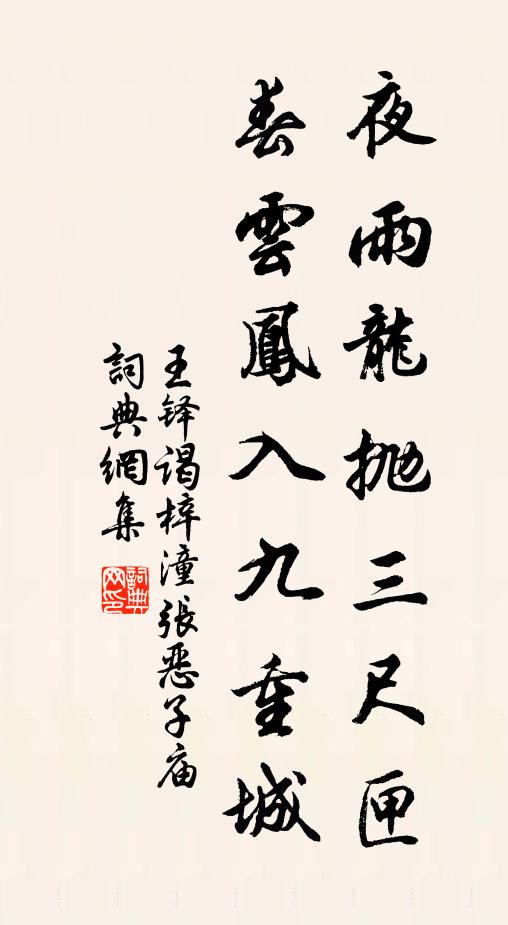 夜雨龍抛三尺匣
春雲鳳入九重城
王铎谒梓潼張恶子庙
詞典網集
詞典網印